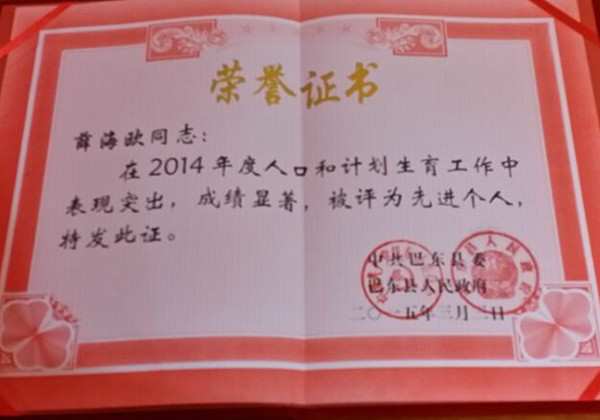 荣誉证书
薛海欧同志：
在2014年度人口和计划生育工作中
表现突出，成绩显著，被评为先进个人，
特发此证。
中共巴东县委
巴东县人民政府
二〇一五年三月二日